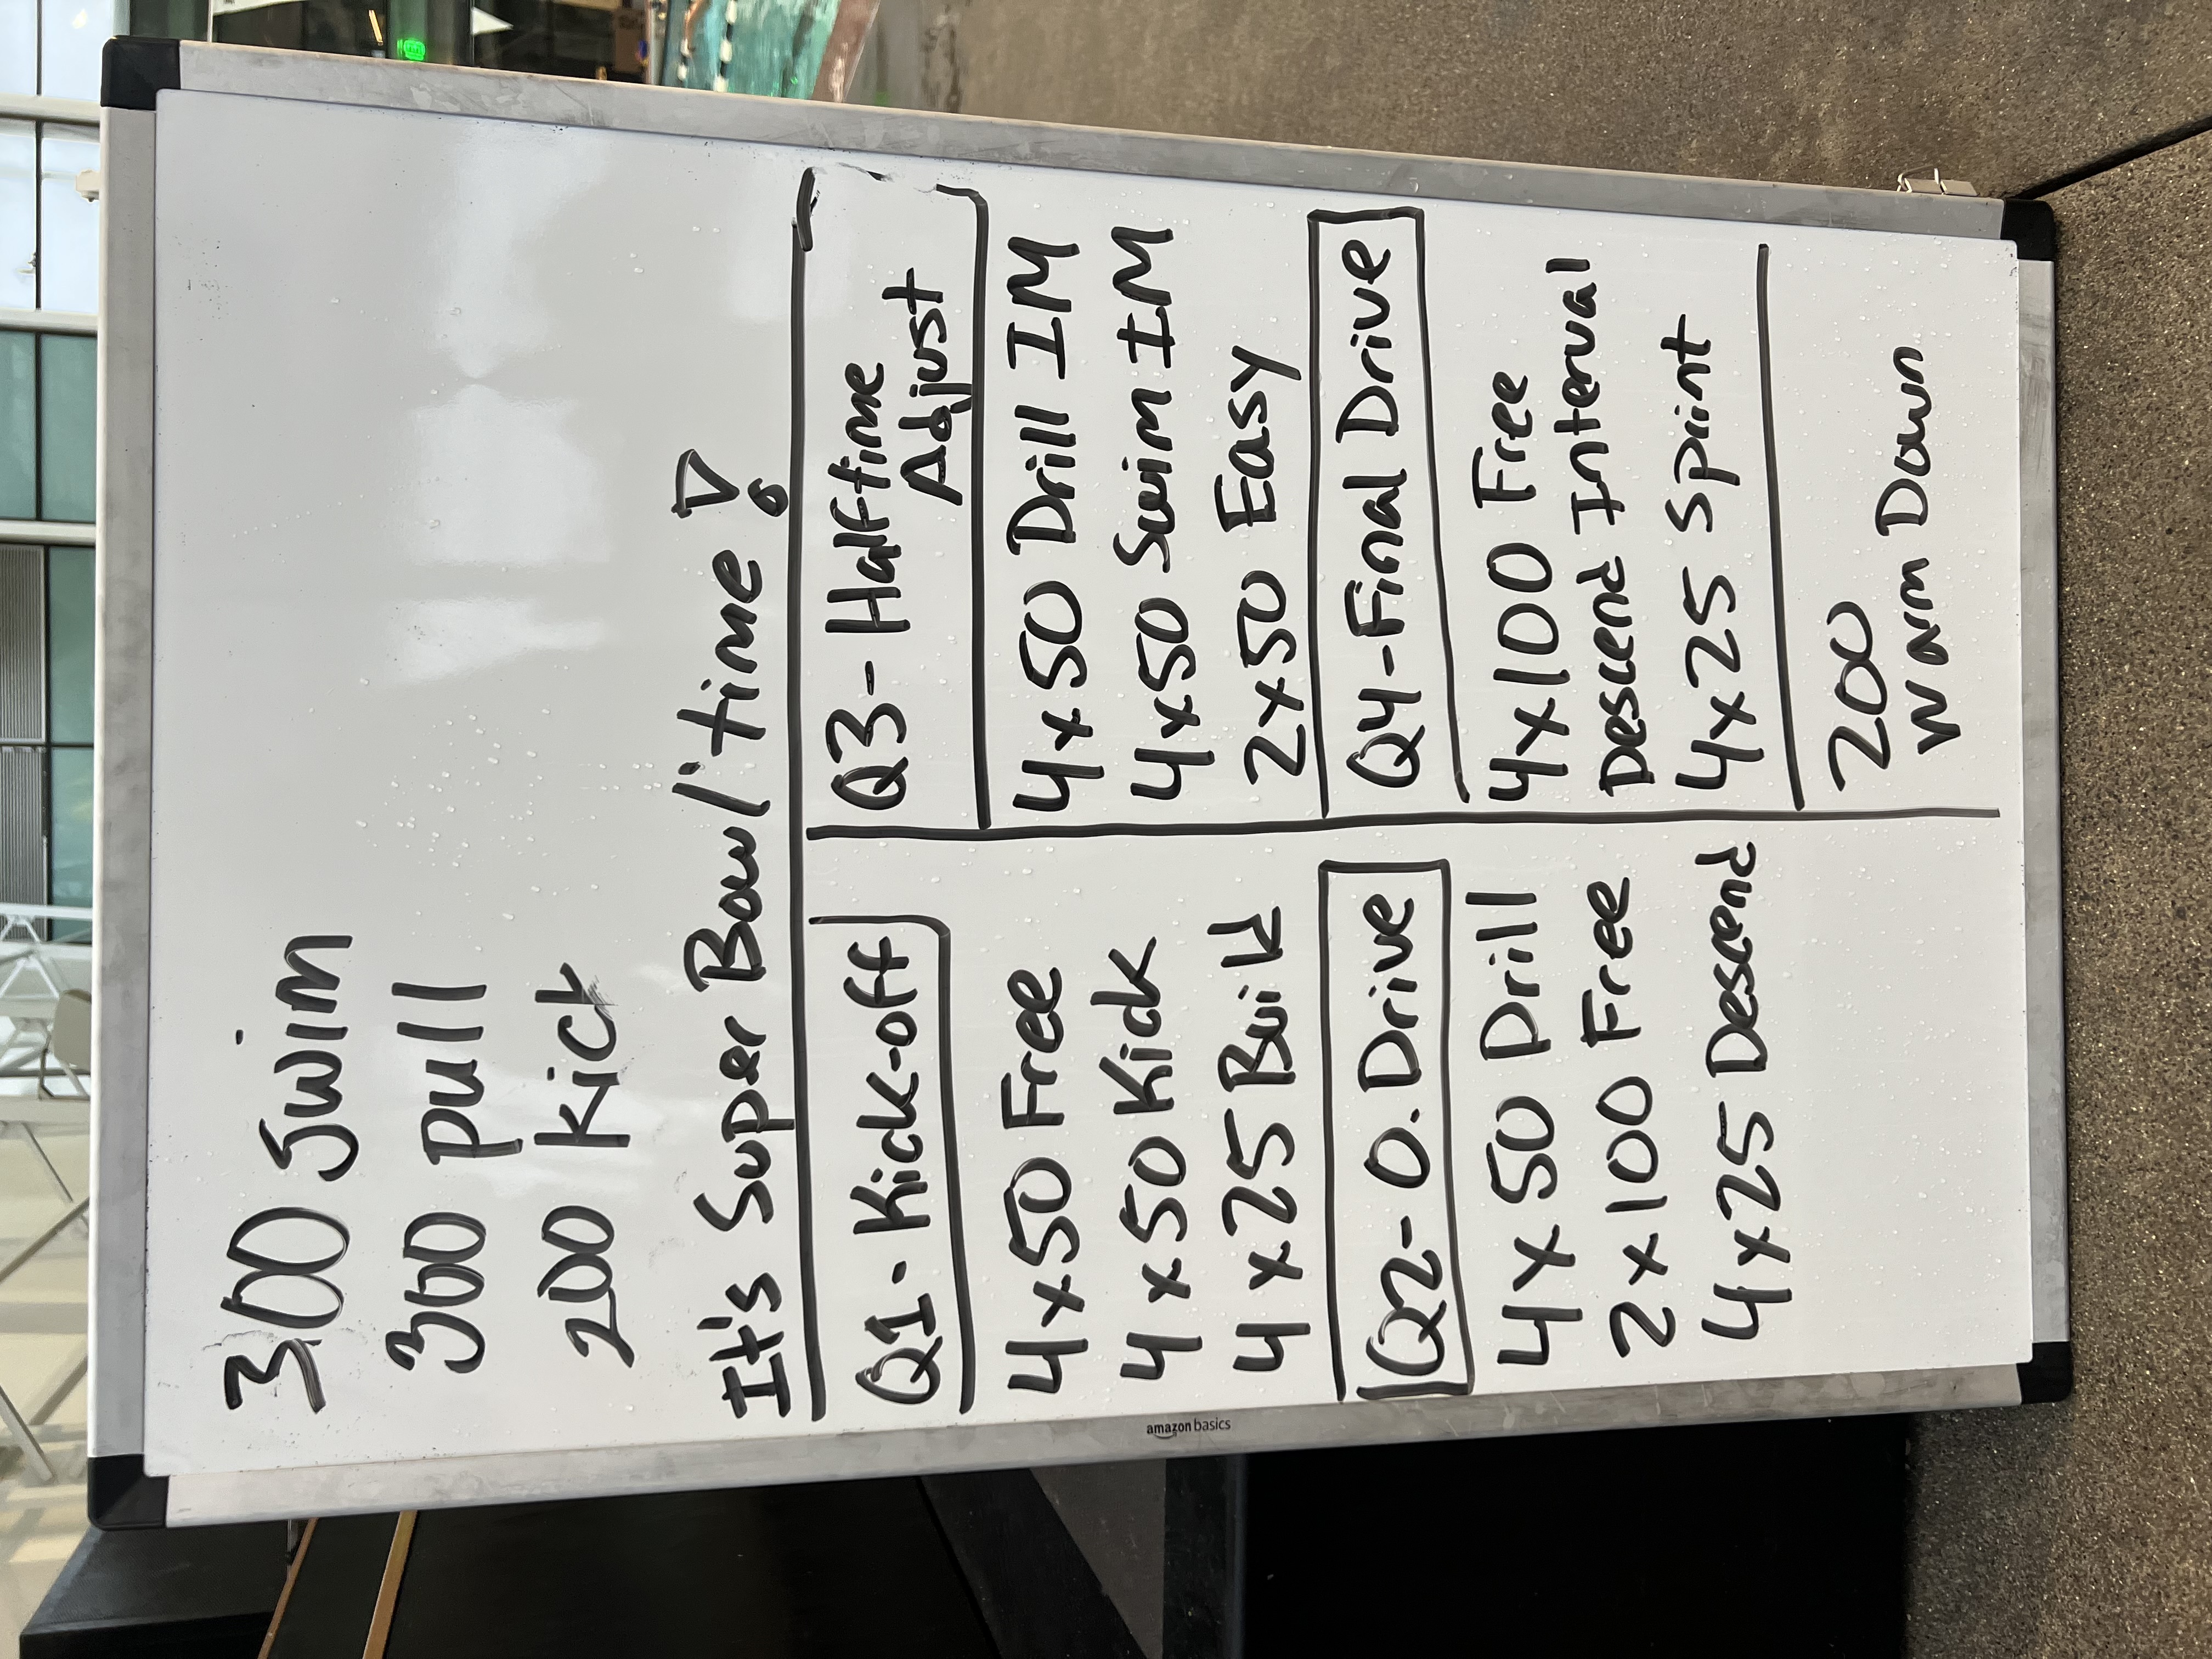 300 Swim
300 pull
200 kick
It's Super Bowl time!
Q1 - Kick-off
4x50 Free
4x50 Kick
4x25 Build
Q2- O. Drive
4x50 Drill
2x100 Free
4x25 Descend
Q3 - Halftime
Adjust
4x50 Drill IM
4x50 Swim IM
2x50 Easy
Q4-Final Drive
4x100 Free
Descend Interval
4x25 Sprint
200
Warm Down
amazon basics